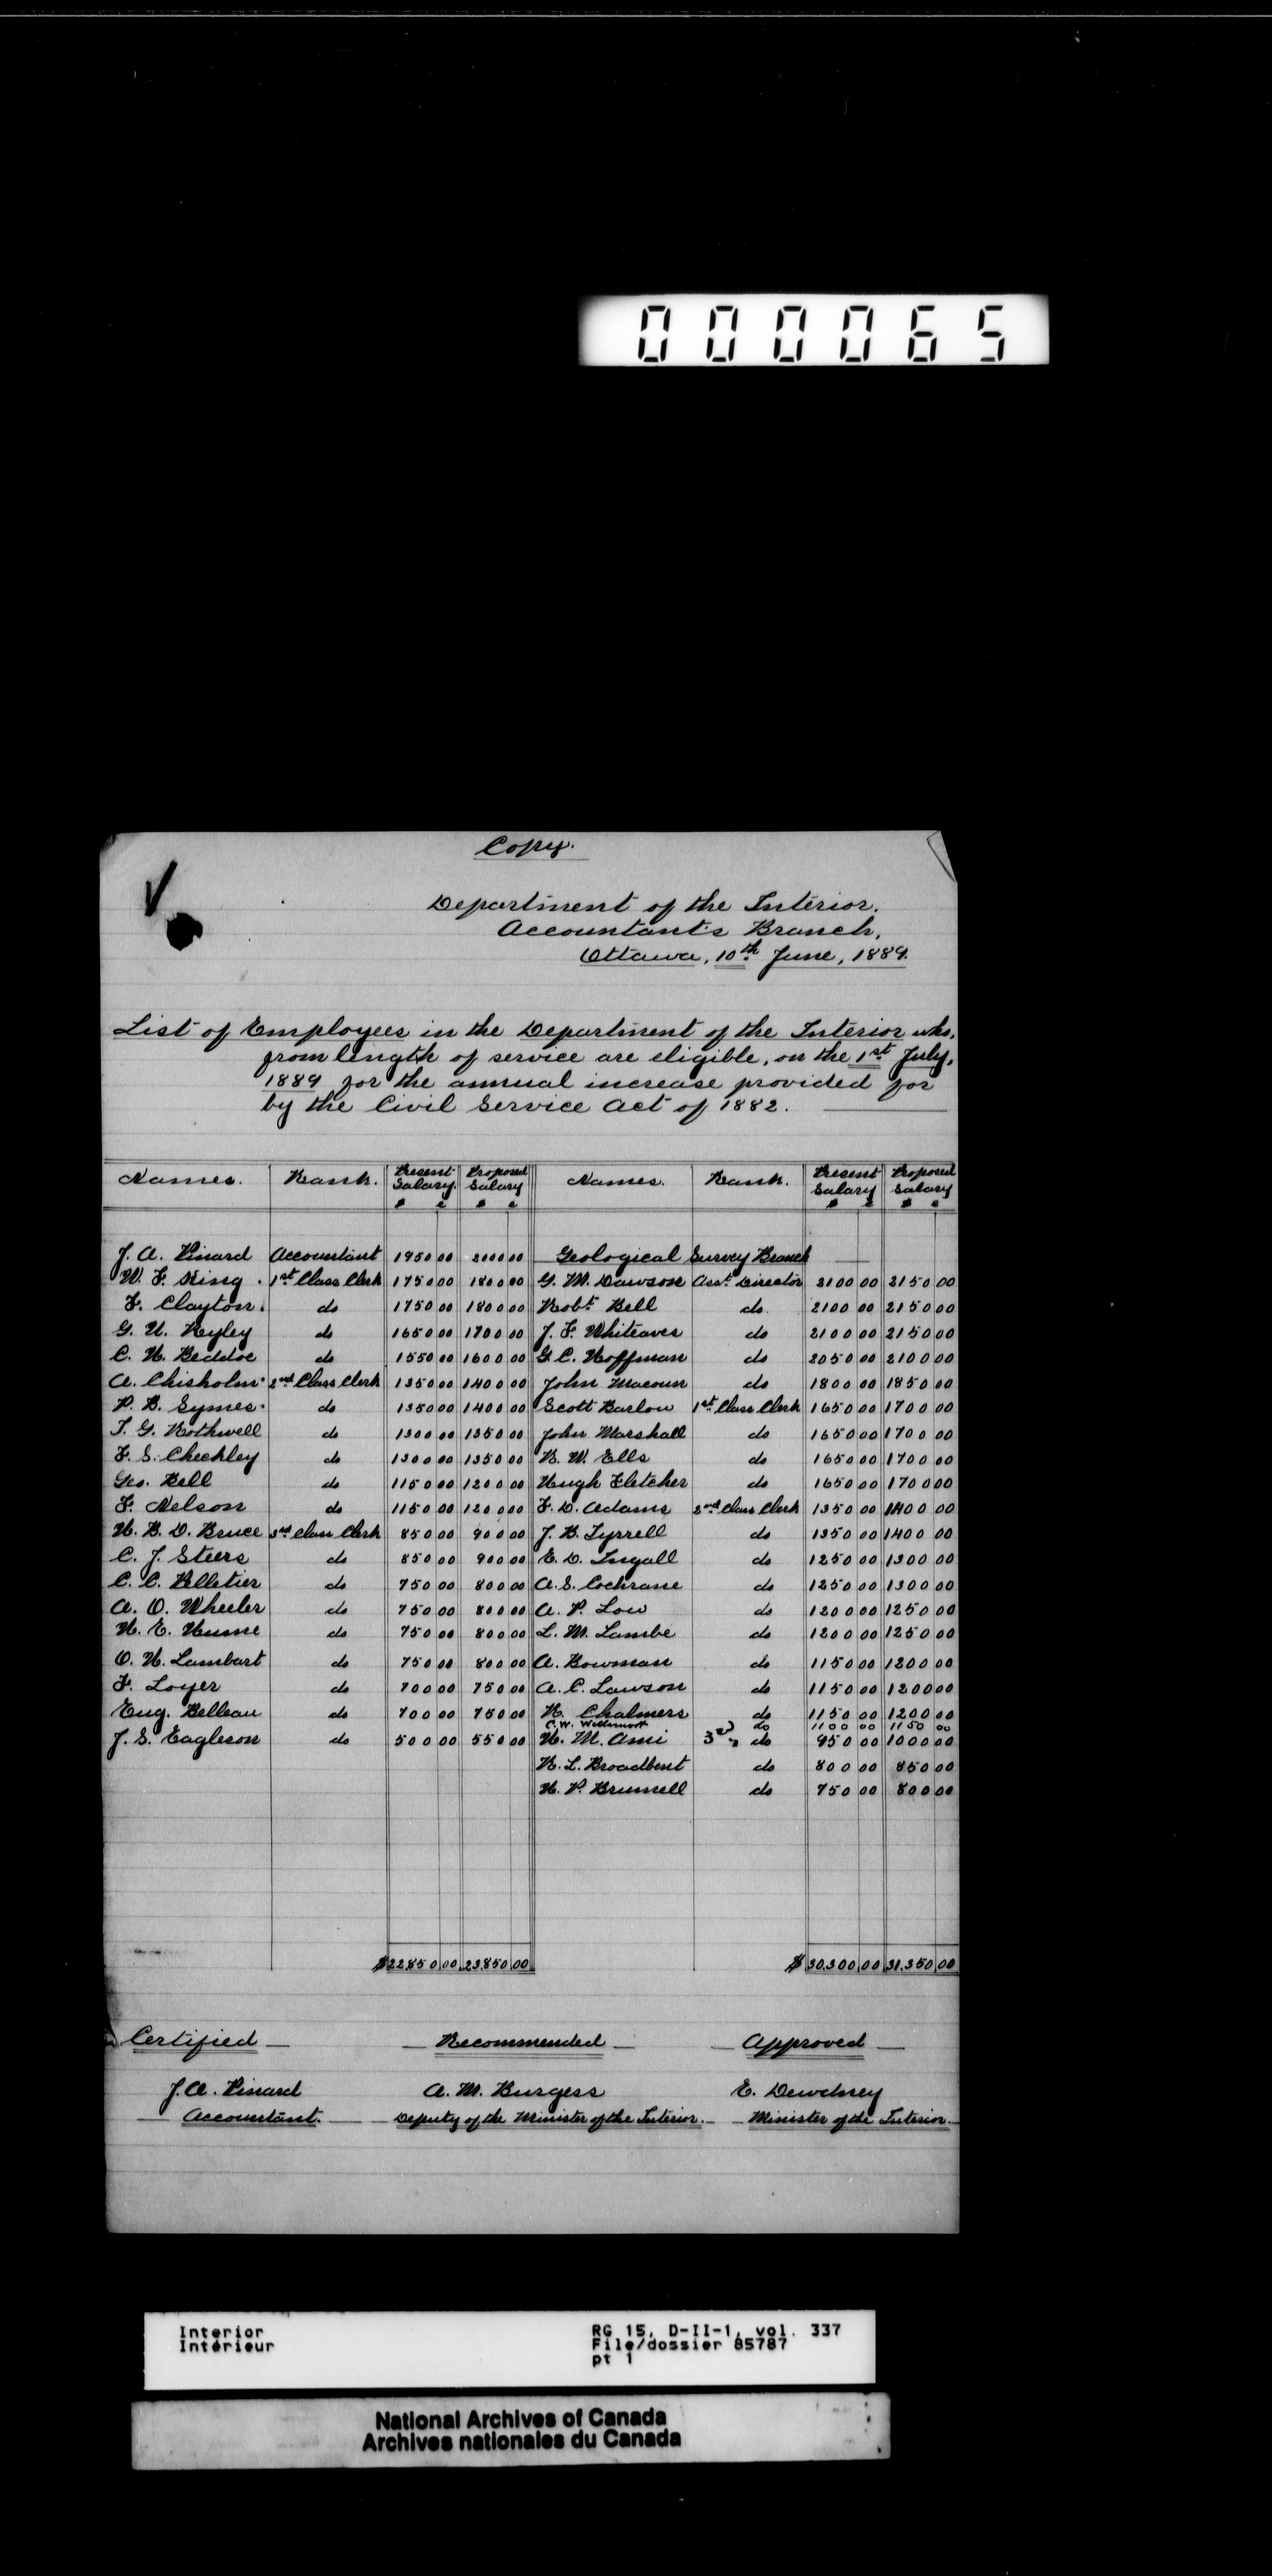 000065
Copy.
Department of the Interior.
Accountant's Branch,
Ottawa, 10th June, 1889.
List of Employees in the Department of the Interior who,
from length of service are eligible, on the 1st July,
1889 for the annual increase provided for
by the Civil Service Act of 1882.
Names. Rank. Present Salary. Proposed Salary Names. Rank. Present Salary Proposed Salary
$ c $ c $ c $ c
J. A. Pinard Accountant 1950 00 2000 00 Geological Survey Branch
W. F. King 1st Class Clerk 1750 00 1800 00 G. M. Dawson Asst. Director 2100 00 2150 00
F. Clayton. do 1750 00 1800 00 Robt. Bell do. 2100 00 2150 00
G. U. Ryley do 1650 00 1700 00 J. F. Whiteaves do 2100 00 2150 00
C. H. Beddoe do 1550 00 1600 00 G. C. Hoffman do 2050 00 2100 00
A. Chisholm 2nd Class Clerk 1350 00 1400 00 John Macoun do 1800 00 1850 00
P. B. Symes. do 1350 00 1400 00 Scott Barlow 1st Class Clerk 1650 00 1700 00
T. G. Rothwell do 1300 00 1350 00 John Marshall do 1650 00 1700 00
F. S. Checkley do 1300 00 1350 00 R. W. Ells do 1650 00 1700 00
Geo. Bell do 1150 00 1200 00 Hugh Fletcher do 1650 00 1700 00
F. Nelson do 1150 00 1200 00 F. D. Adams 2nd Class Clerk 1350 00 1400 00
H. B. D. Bruce 3rd Class Clerk 850 00 900 00 J. B. Tyrrell do 1350 00 1400 00
C. J. Steers do 850 00 900 00 E. D. Ingall do 1250 00 1300 00
C. C. Pelletier do 750 00 800 00 A. S. Cochrane do 1250 00 1300 00
A. O. Wheeler do 750 00 800 00 A. P. Low do 1200 00 1250 00
H. E. Hume do 750 00 800 00 L. M. Lambe do 1200 00 1250 00
O. H. Lambart do 750 00 800 00 A. Bowman do 1150 00 1200 00
F. Loyer do 700 00 750 00 A. C. Lawson do 1150 00 1200 00
Eug. Belleau do 700 00 750 00 R. Chalmers do 1150 00 1200 00
C. W. Willimott do 1100 00 1150 00
J. S. Eagleson do 500 00 550 00 H. M. Ami 3rd " do 950 00 1000 00
R. L. Broadbent do 800 00 850 00
H. P. Brumell do 750 00 800 00
$22,850 00 23,850 00 $30,300 00 31,350 00
Certified Recommended Approved
J. A. Pinard A. M. Burgess E. Dewdney
Accountant. Deputy of the Minister of the Interior. Minister of the Interior.
Interior RG 15, D-II-1, vol. 337
Intérieur File/dossier 85787
pt 1
National Archives of Canada
Archives nationales du Canada